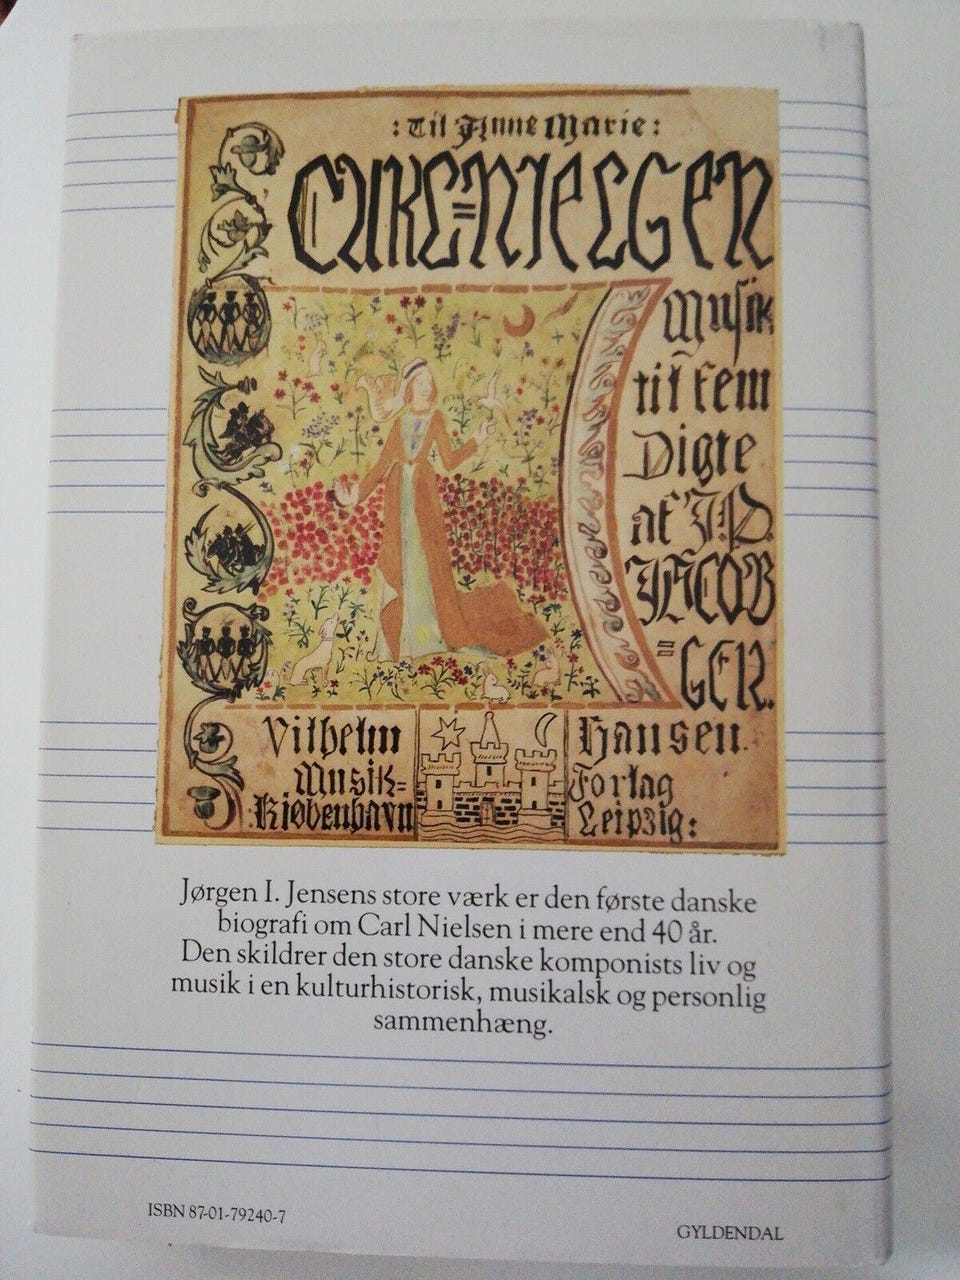 : Til Anne Marie :
CARL=NIELSEN
Musik
til fem
Digte
af J.P.
JACOB
=SEN.
Vilhelm
Musik=
Kjøbenhavn
Hansen.
Forlag
Leipzig:
Jørgen I. Jensens store værk er den første danske
biografi om Carl Nielsen i mere end 40 år.
Den skildrer den store danske komponists liv og
musik i en kulturhistorisk, musikalsk og personlig
sammenhæng.
ISBN 87-01-79240-7
GYLDENDAL